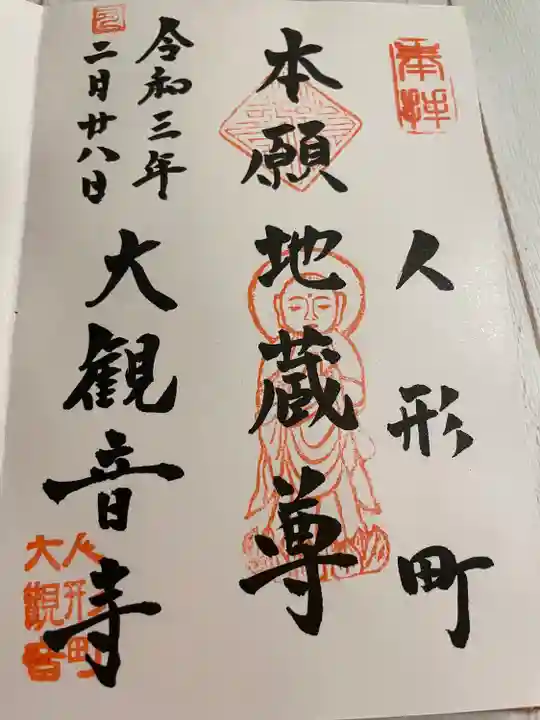 奉拝
人形町
本願地蔵尊
大観音寺
令和三年
二月廿八日
人形町
大観音